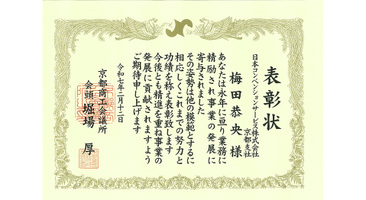 表彰状
日本コンベンションサービス株式会社
京都支社
梅田恭央 様
あなたは永年に亘り業務に
精励され事業の発展に
寄与されました
その姿勢は他の模範とするに
相応しくこれまでの努力と
功績を称え表彰致します
今後とも精進を重ね事業の
発展に貢献されますよう
ご期待申し上げます
令和七年二月十二日
京都商工会議所
会頭 堀場 厚